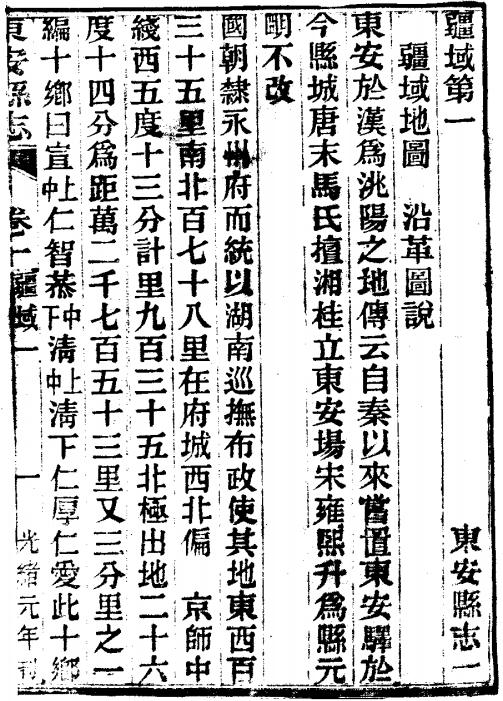 疆域第一 東安縣志一
疆域地圖 沿革圖說
東安於漢爲洮陽之地傳云自秦以來嘗置東安驛於
今縣城唐末馬氏擅湘桂立東安場宋雍熙升爲縣元
明不改
國朝隸永州府而統以湖南巡撫布政使其地東西百
三十五里南北百七十八里在府城西北偏 京師中
綫西五度十三分計里九百三十五北極出地二十六
度十四分爲距萬二千七百五十三里又三分里之一
編十鄉曰宣上中仁智中下清上中清下仁厚仁愛此十鄉
東安縣志 卷一疆域一 一 光緒元年刊